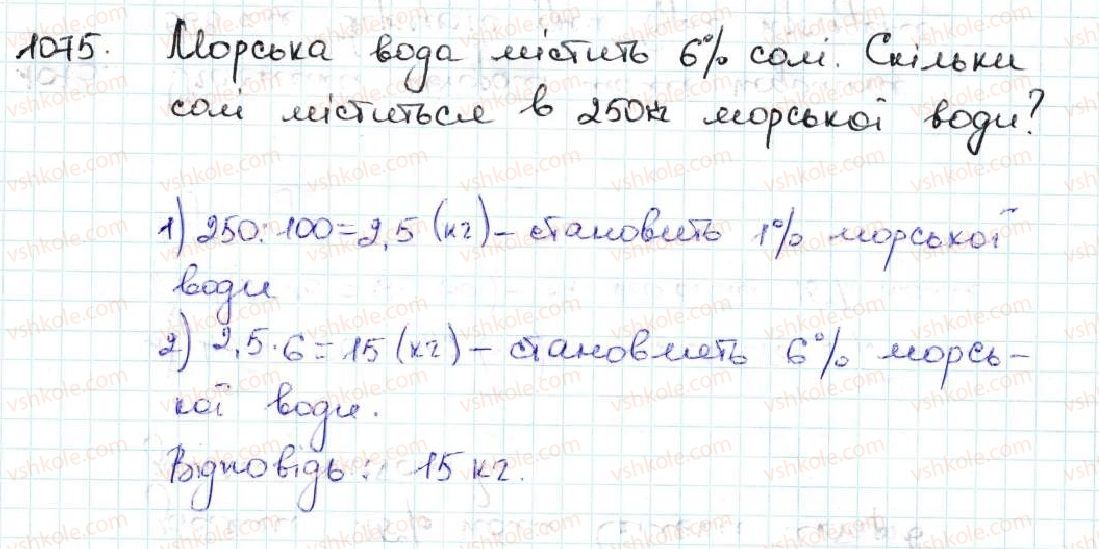 1075. Морська вода містить 6% солі. Скільки
солі міститься в 250кг морської води?
1) 250:100=2,5 (кг) – становить 1% морської
води
2) 2,5·6=15 (кг) – становлять 6% морсь-
кої води.
Відповідь: 15 кг.
vshkole.com